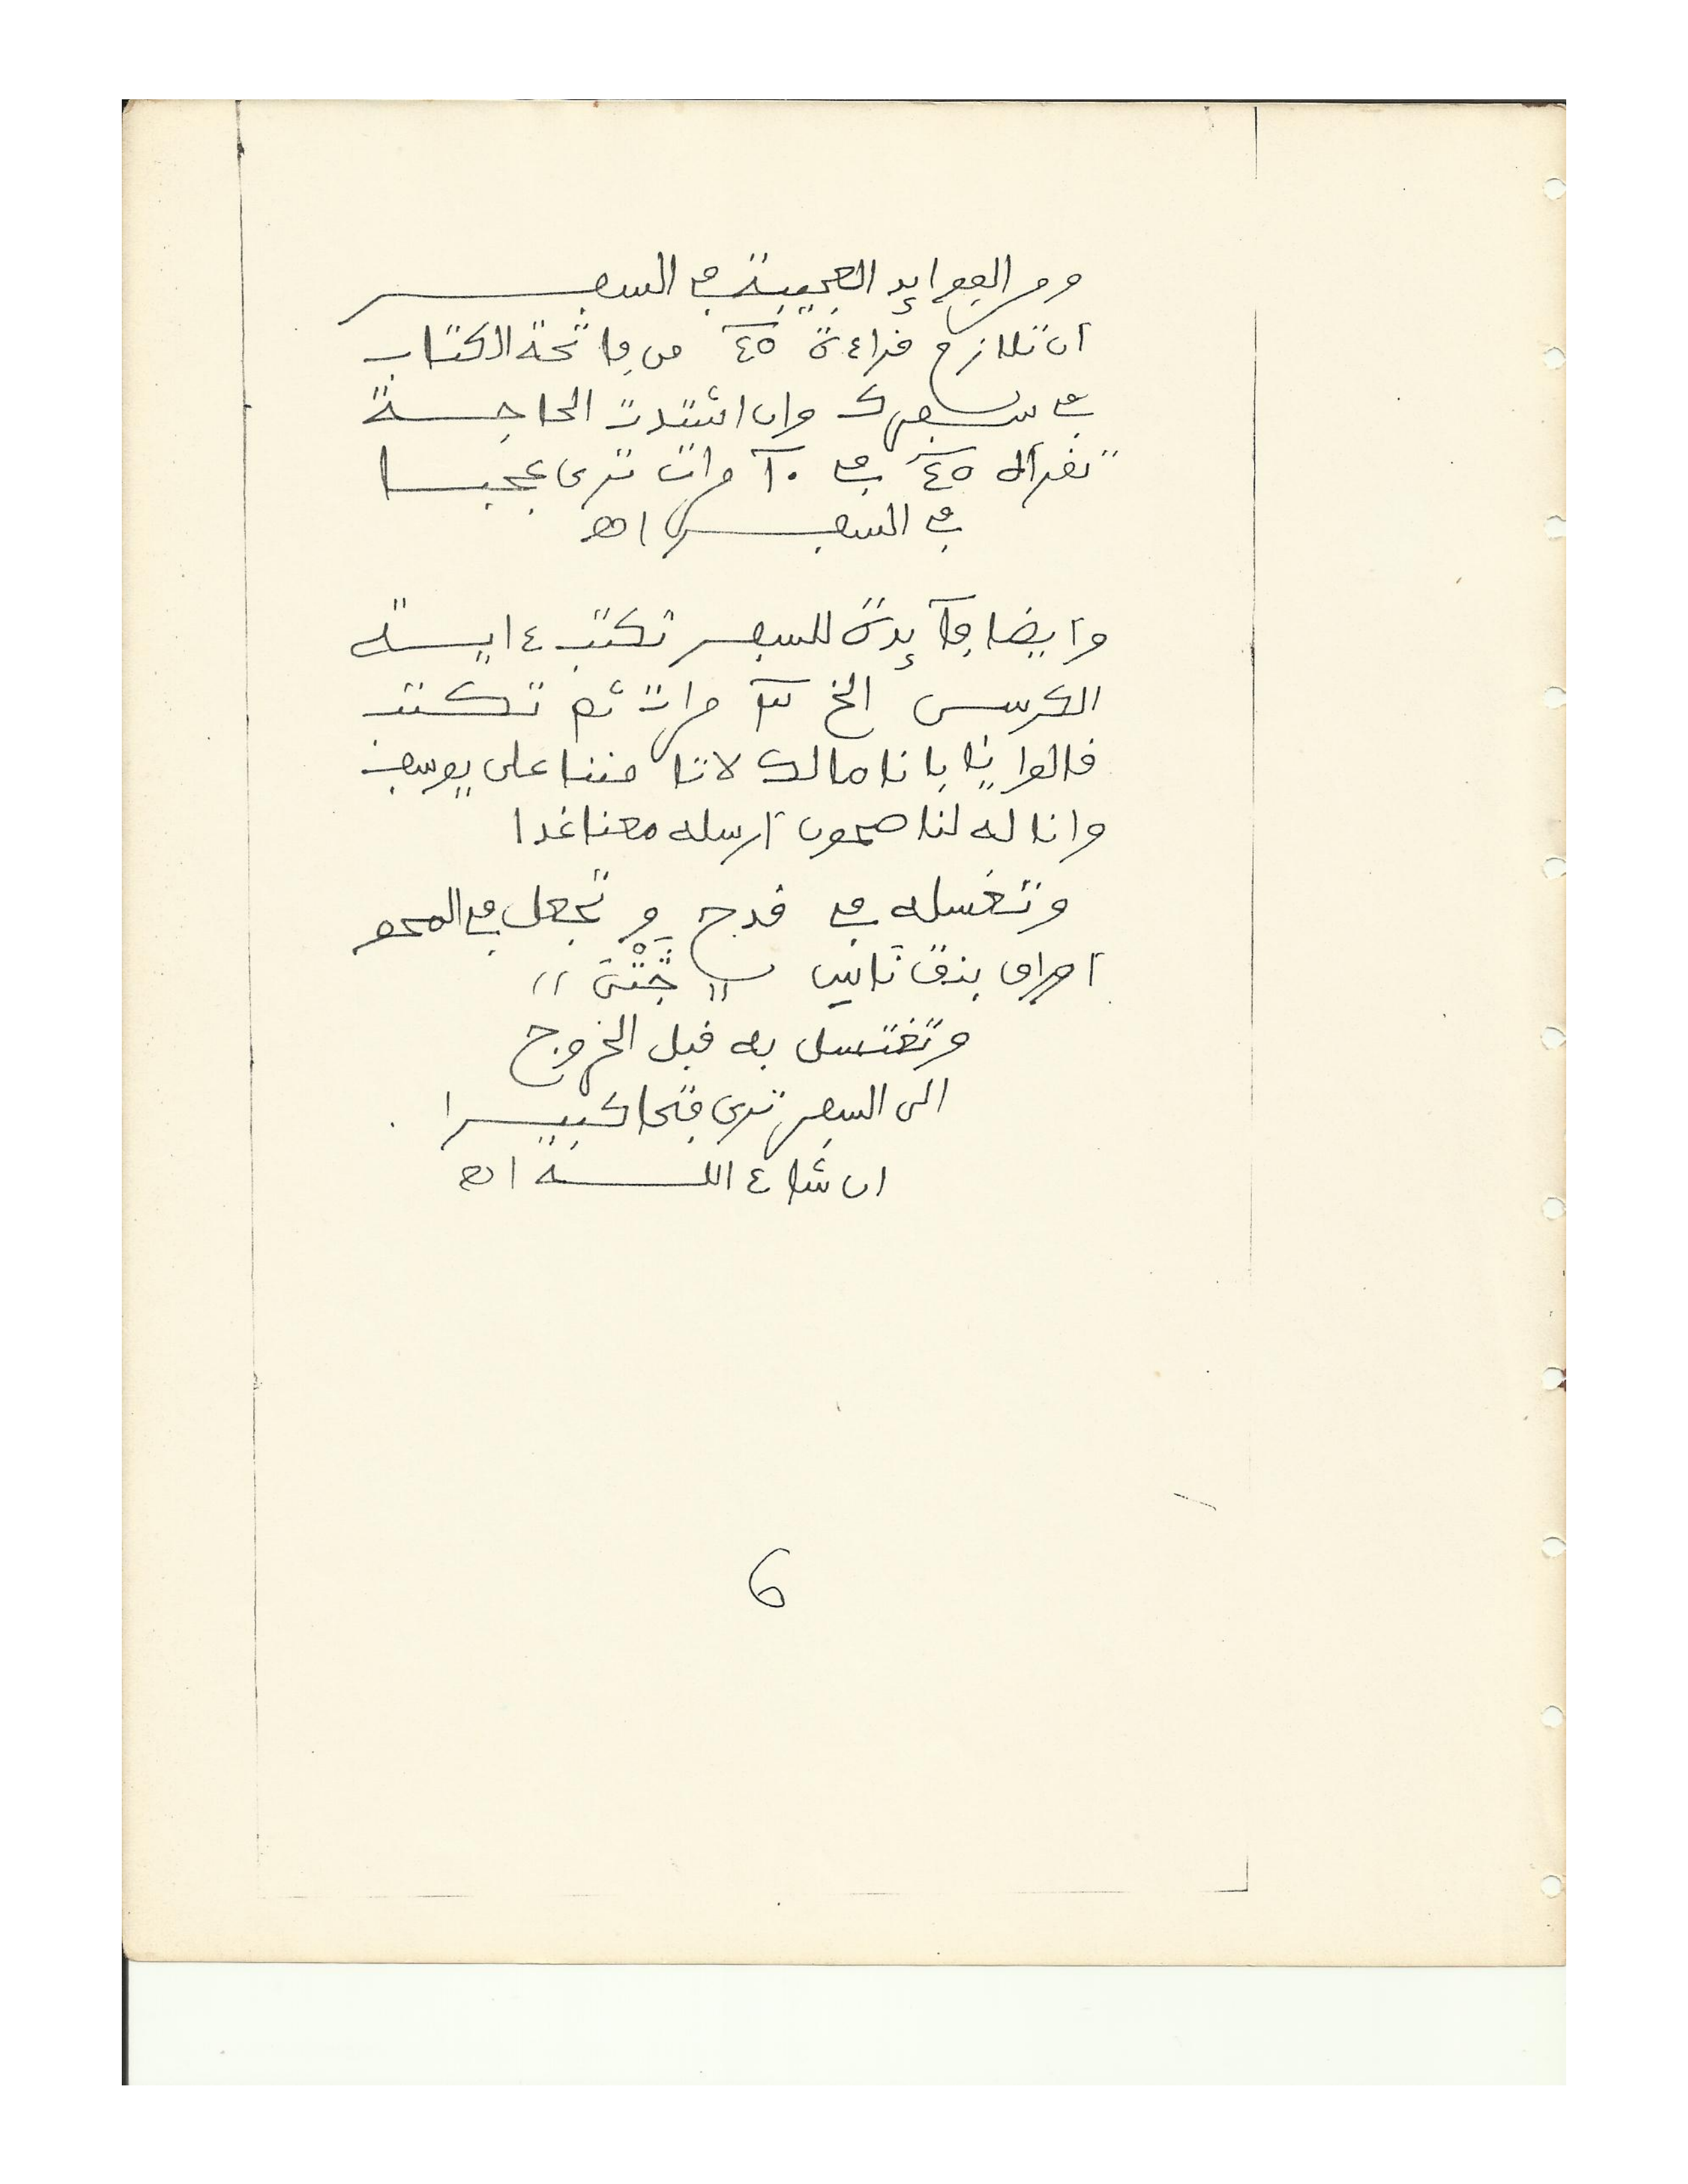 ومن الفوايد العجيبة في السفر
ان تلازم قراءة ٤٥ من فاتحة الكتاب
في سفرك وان اشتدت الحاجة
تقرأ ال ٤٥ في ١٠ مرات ترى عجبا
في السفر اه
وايضا فآيدة للسفر تكتب ءاية
الكرسي الخ مرات ثم تكتب
قالوا يا بانا مالك لا تا مننا على يوسف
وانا له لنا صحون ارسله معنا غدا
وتغسله في قدح و تجعل في المحو
بنق تانيى " جتنى "
وتغتسل به قبل الخروج
الى السفر ترى فتحا كبيرا
ان شاء الله اه
6